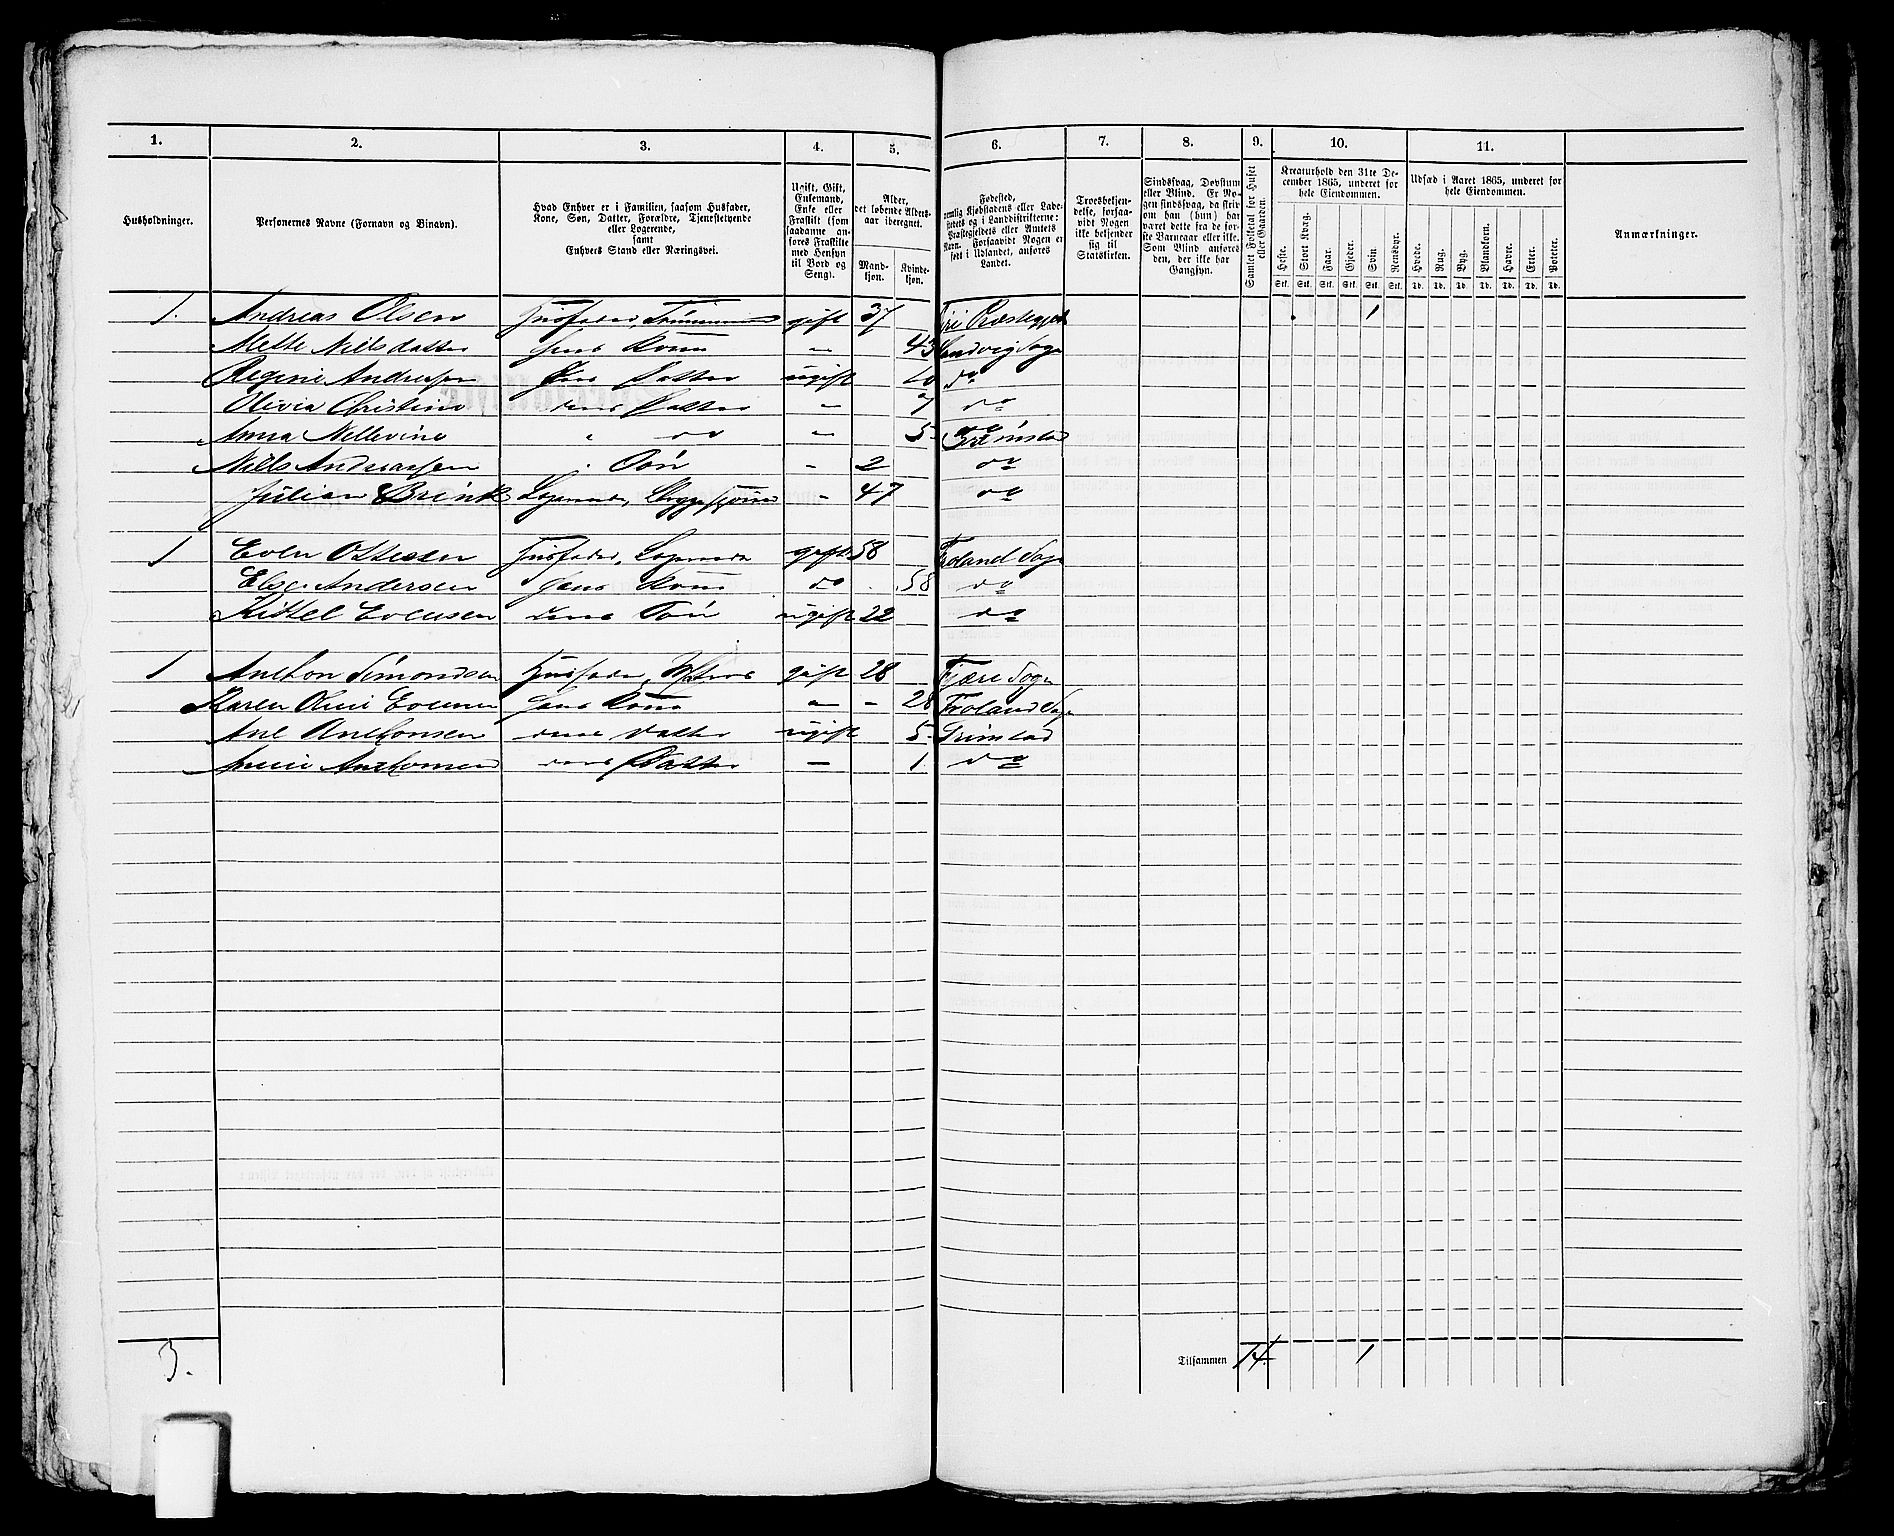 1. 2. 3. 4. 5. 6. 7. 8. 9. 10. 11.
Husholdninger.
Personernes Navne (Fornavn og Binavn).
Hvad Enhver er i Familien, saasom Husfader,
Kone, Søn, Datter, Forældre, Tjenestetyende
eller Logerende,
samt
Enhvers Stand eller Næringsvei.
Ugift, Gift,
Enkemand,
Enke eller
Fraskilt (som
saadanne an-
føres Fraskilte
med Hensyn
til Bord og
Seng).
Alder,
det løbende Alders-
aar iberegnet.
Mand-
kjøn.
Kvinde-
kjøn.
Fødested,
nemlig Kjøbstadens eller Lade-
stedets og i Landdistrikterne:
Præstegjeldets eller Amtets
Navn. Forsaavidt Nogen er
født i Udlandet, anføres
Landet.
Troesbekjen-
delse, forsaa-
vidt Nogen
ikke bekjender
sig til
Statskirken.
Sindssvag, Døvstum
eller Blind. Er No-
gen sindssvag, da skriv
om han (hun) har
været dette fra de før-
ste Barneaar eller ikke.
Som Blind anføres
den, der ikke har
Gangsyn.
Samlet Folketal for Huset
eller Gaarden.
Kreaturhold den 31te De-
cember 1865, underet for
hele Eiendommen.
Heste. Stort Kvæg. Faar. Gjeder. Svin. Rensdyr.
Stk. Stk. Stk. Stk. Stk. Stk.
Udsæd i Aaret 1865, underet for
hele Eiendommen.
Hvede. Rug. Byg. Blandkorn. Havre. Erter. Poteter.
Td. Td. Td. Td. Td. Td. Td.
Anmærkninger.
1. Andreas Olsen Husfader, gift 37 Præstegjeld 1
Mette Nielsdatter Hans Kone " 43 Landvig Sogn
Regine Andreasen Datter ugift 10 do
Olivia Christine deres Datter " 7 do
Anna Nellevine " do " 5 Grimstad
Niels Andreassen " Søn " 2 do
Julian Brink Logerende, " 47 do
1 Even Ottesen Husfader, Logerende gift 58 Froland Sogn
Else Andersen Hans Kone do 58 do
Kittel Evensen deres Søn ugift 22 do
1 Anthon Simondsen Husfader, gift 28 Fjære Sogn
Karen Oline Evensen Hans Kone " - 28 Froland Sogn
Ane Anthonsen deres Datter ugift 5 Grimstad
Anne Anthonsen deres Datter - 1 do
3. Tilsammen 14. 1